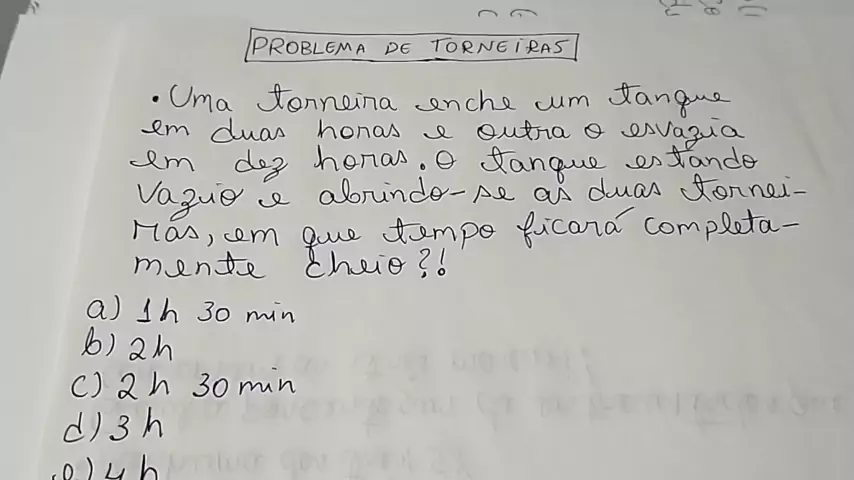 PROBLEMA DE TORNEIRAS
• Uma torneira enche um tanque
em duas horas e outra o esvazia
em dez horas. O tanque estando
vazio e abrindo-se as duas tornei-
ras, em que tempo ficará completa-
mente cheio?!
a) 1h 30 min
b) 2h
c) 2h 30 min
d) 3h
e) 4h